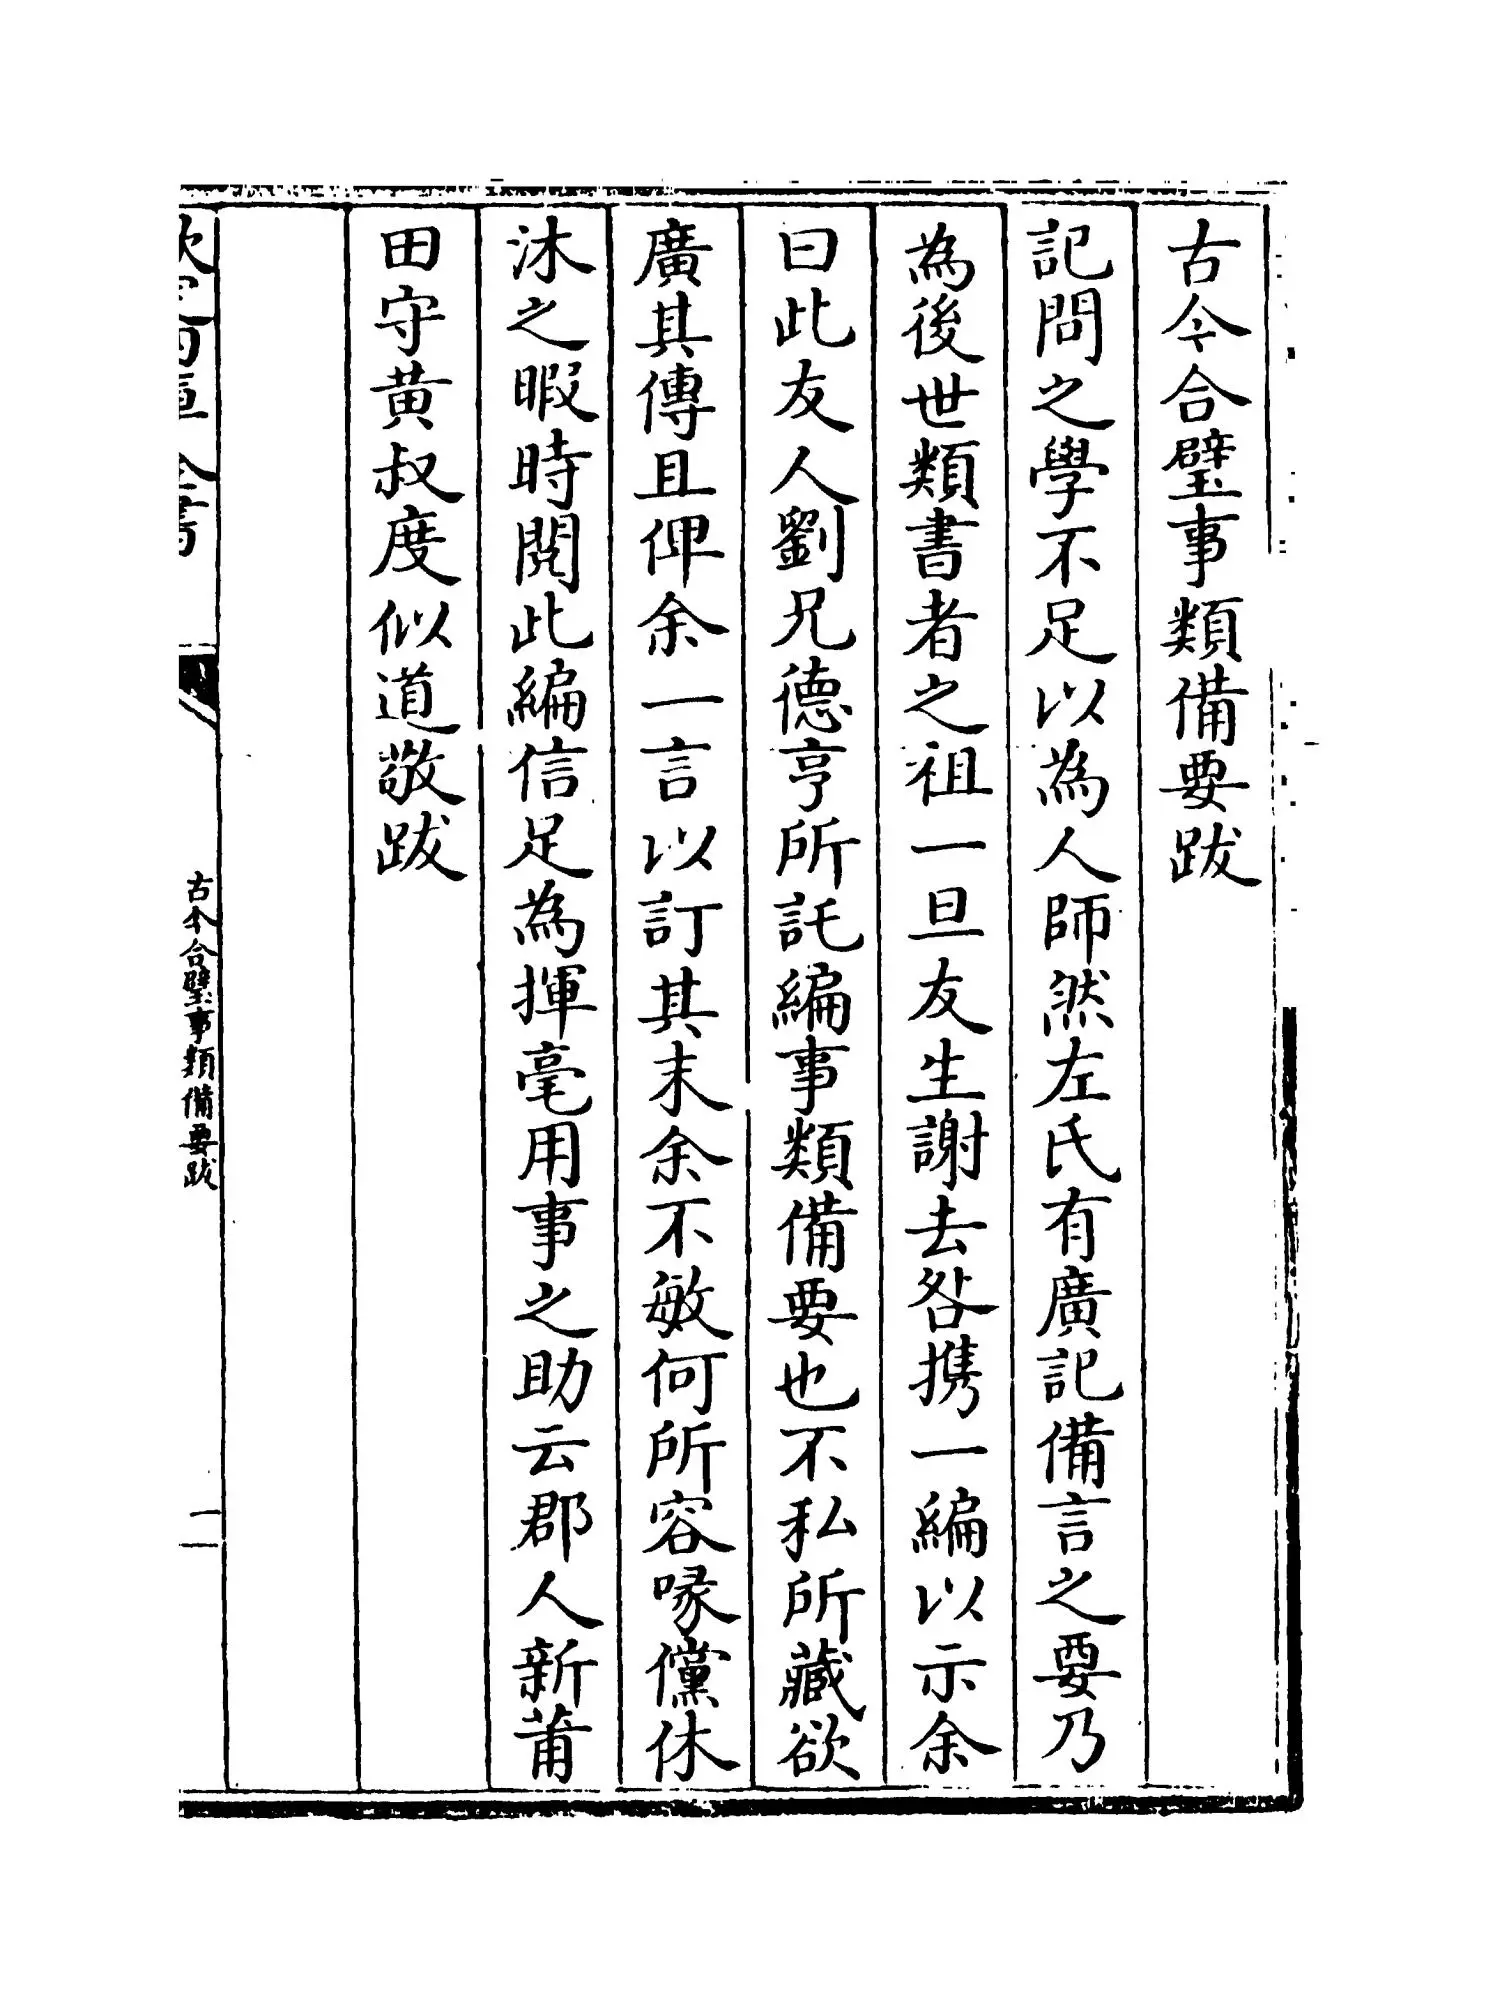 古今合璧事類備要跋
記問之學不足以為人師然左氏有廣記備言之要乃
為後世類書者之祖一旦友生謝去咎携一編以示余
曰此友人劉兄德亨所託編事類備要也不私所藏欲
廣其傳且俾余一言以訂其末余不敏何所容喙儻休
沐之暇時閱此編信足為揮毫用事之助云郡人新莆
田守黄叔度似道敬跋
欽定四庫全書
古今合璧事類備要跋
一